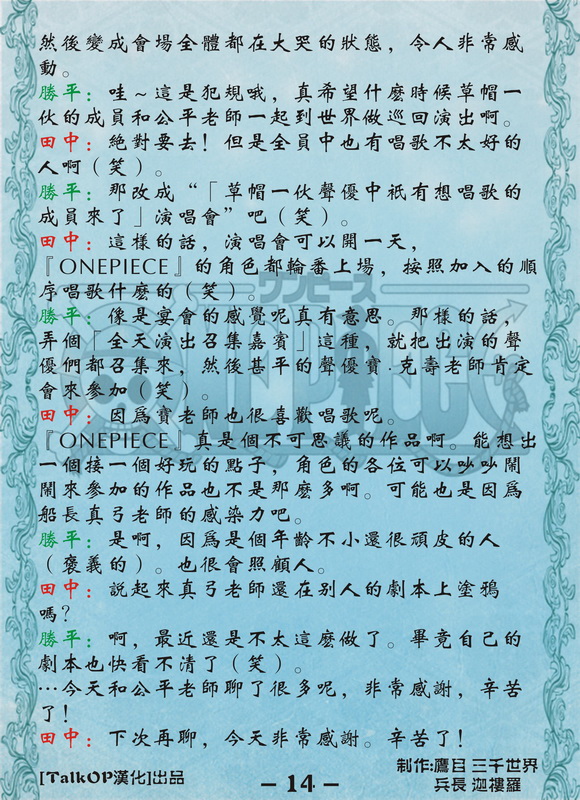 然後變成會場全體都在大哭的狀態，令人非常感
動。
勝平：哇～這是犯規哦，真希望什麼時候草帽一
伙的成員和公平老師一起到世界做巡回演出啊。
田中：絕對要去！但是全員中也有唱歌不太好的
人啊（笑）。
勝平：那改成“「草帽一伙聲優中祇有想唱歌的
成員來了」演唱會”吧（笑）。
田中：這樣的話，演唱會可以開一天，
『ONEPIECE』的角色都輪番上場，按照加入的順
序唱歌什麼的（笑）。
勝平：像是宴會的感覺呢真有意思。那樣的話，
弄個「全天演出召集嘉賓」這種，就把出演的聲
優們都召集來，然後甚平的聲優寶·克壽老師肯定
會來參加（笑）。
田中：因爲寶老師也很喜歡唱歌呢。
『ONEPIECE』真是個不可思議的作品啊。能想出
一個接一個好玩的點子，角色的各位可以吵吵鬧
鬧來參加的作品也不是那麼多啊。可能也是因爲
船長真弓老師的感染力吧。
勝平：是啊，因爲是個年齡不小還很頑皮的人
（褒義的）。也很會照顧人。
田中：説起來真弓老師還在別人的劇本上塗鴉
嗎？
勝平：啊，最近還是不太這麼做了。畢竟自己的
劇本也快看不清了（笑）。
…今天和公平老師聊了很多呢，非常感謝，辛苦
了！
田中：下次再聊，今天非常感謝。辛苦了！
[TalkOP漢化]出品
－14－
制作:鷹目 三千世界
兵長 迦樓羅
ワンピース
ONE PIECE